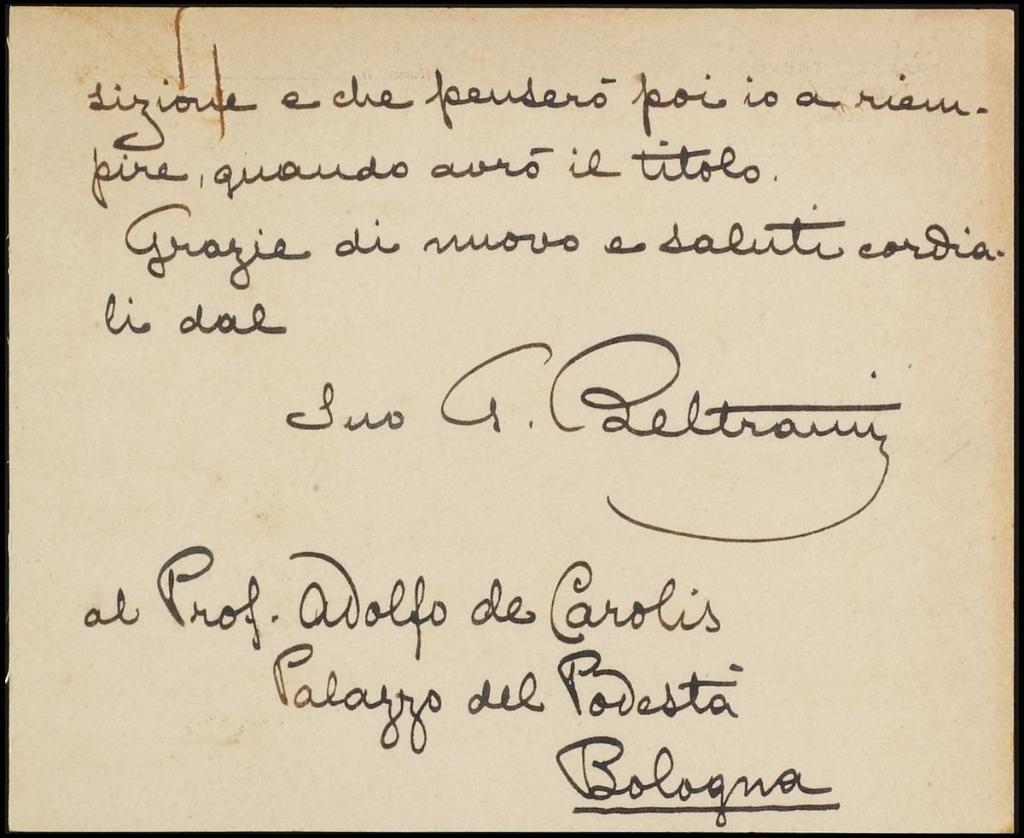 sizione e che penserò poi io a riem-
pire, quando avrò il titolo.
Grazie di nuovo e saluti cordia-
li dal
Suo G. Beltrami
al Prof. Adolfo de Carolis
Palazzo del Podestà
Bologna